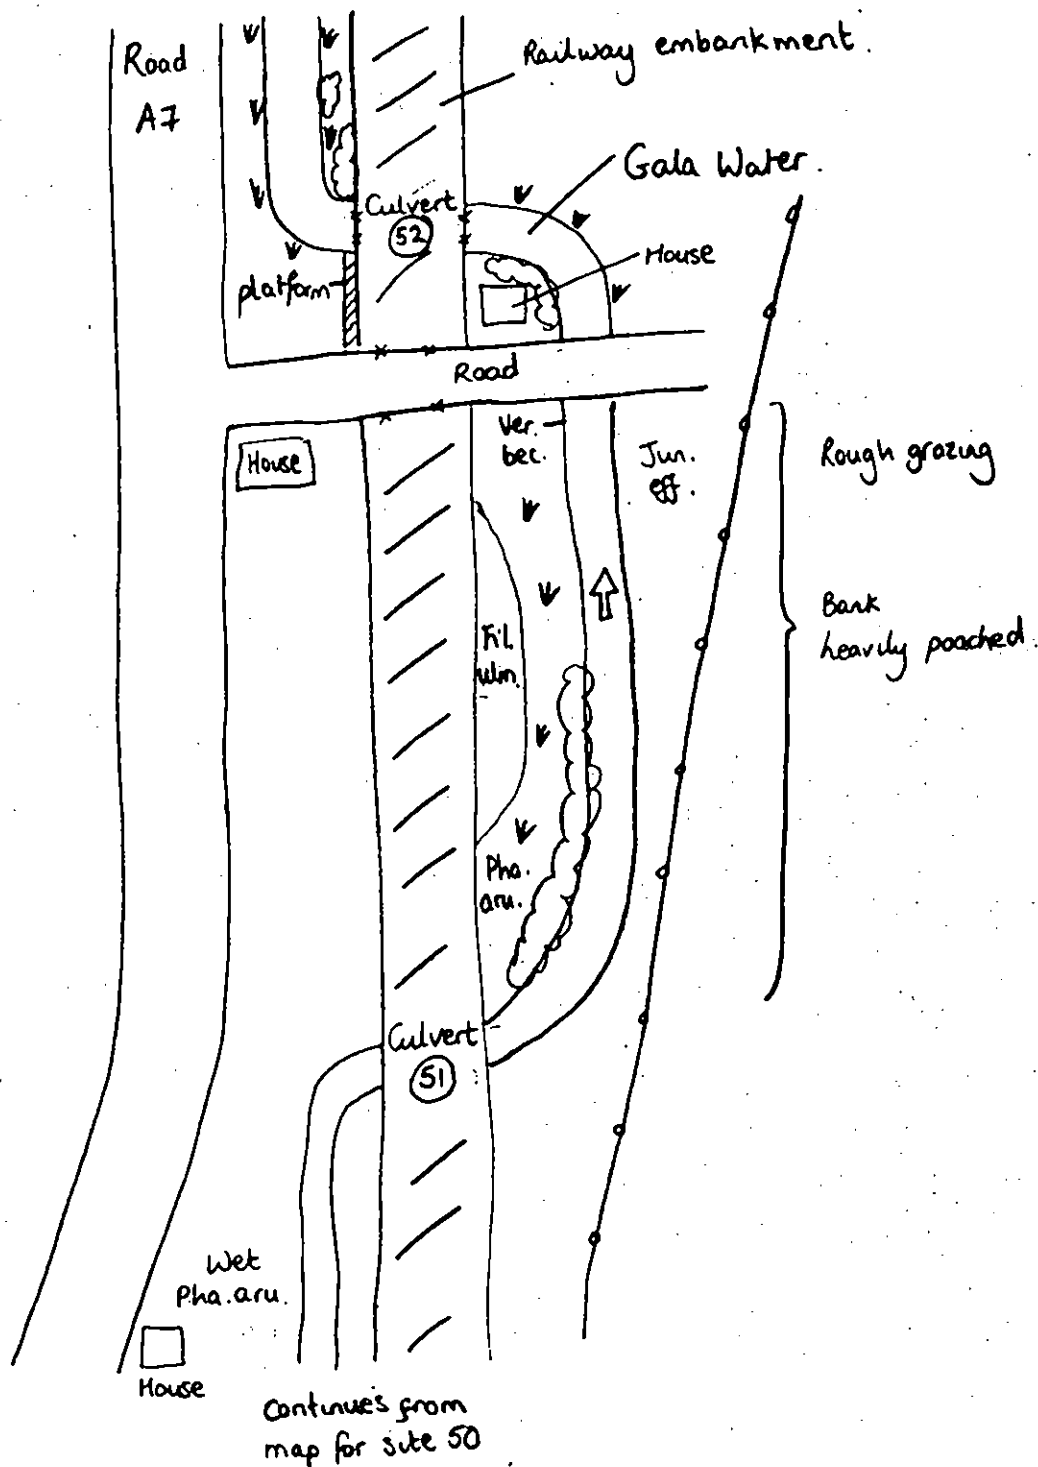 Road
A7
Railway embankment.
Gala Water.
Culvert
52
House
platform
Road
House
Ver.
bec.
Jun.
eff.
Rough grazing
Bank
heavily poached.
Fil.
ulm.
Pha.
aru.
Culvert
51
Wet
Pha.aru.
House
Continues from
map for site 50